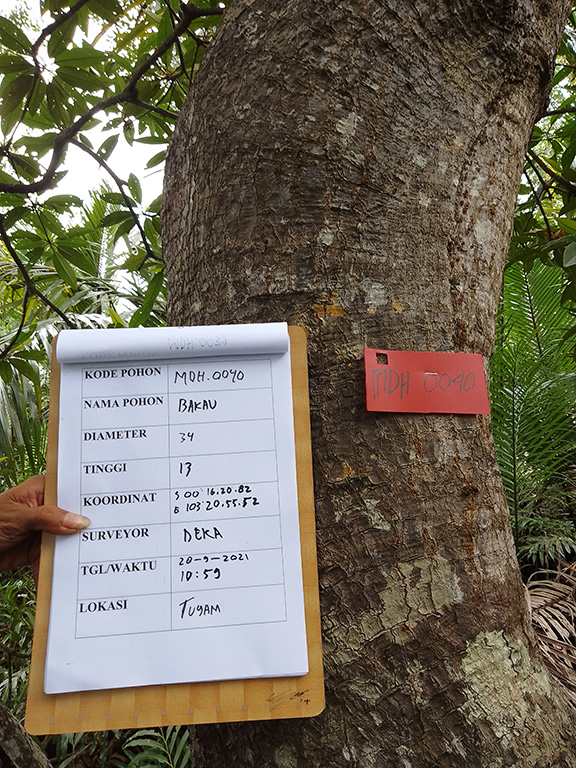 KODE POHON MDH.0040
NAMA POHON BAKAU
DIAMETER 34
TINGGI 13
KOORDINAT S 00°16.20.82
E 103°20.55.52
SURVEYOR DEKA
TGL/WAKTU 20-9-2021
10:59
LOKASI TUGAM
MDH 0040